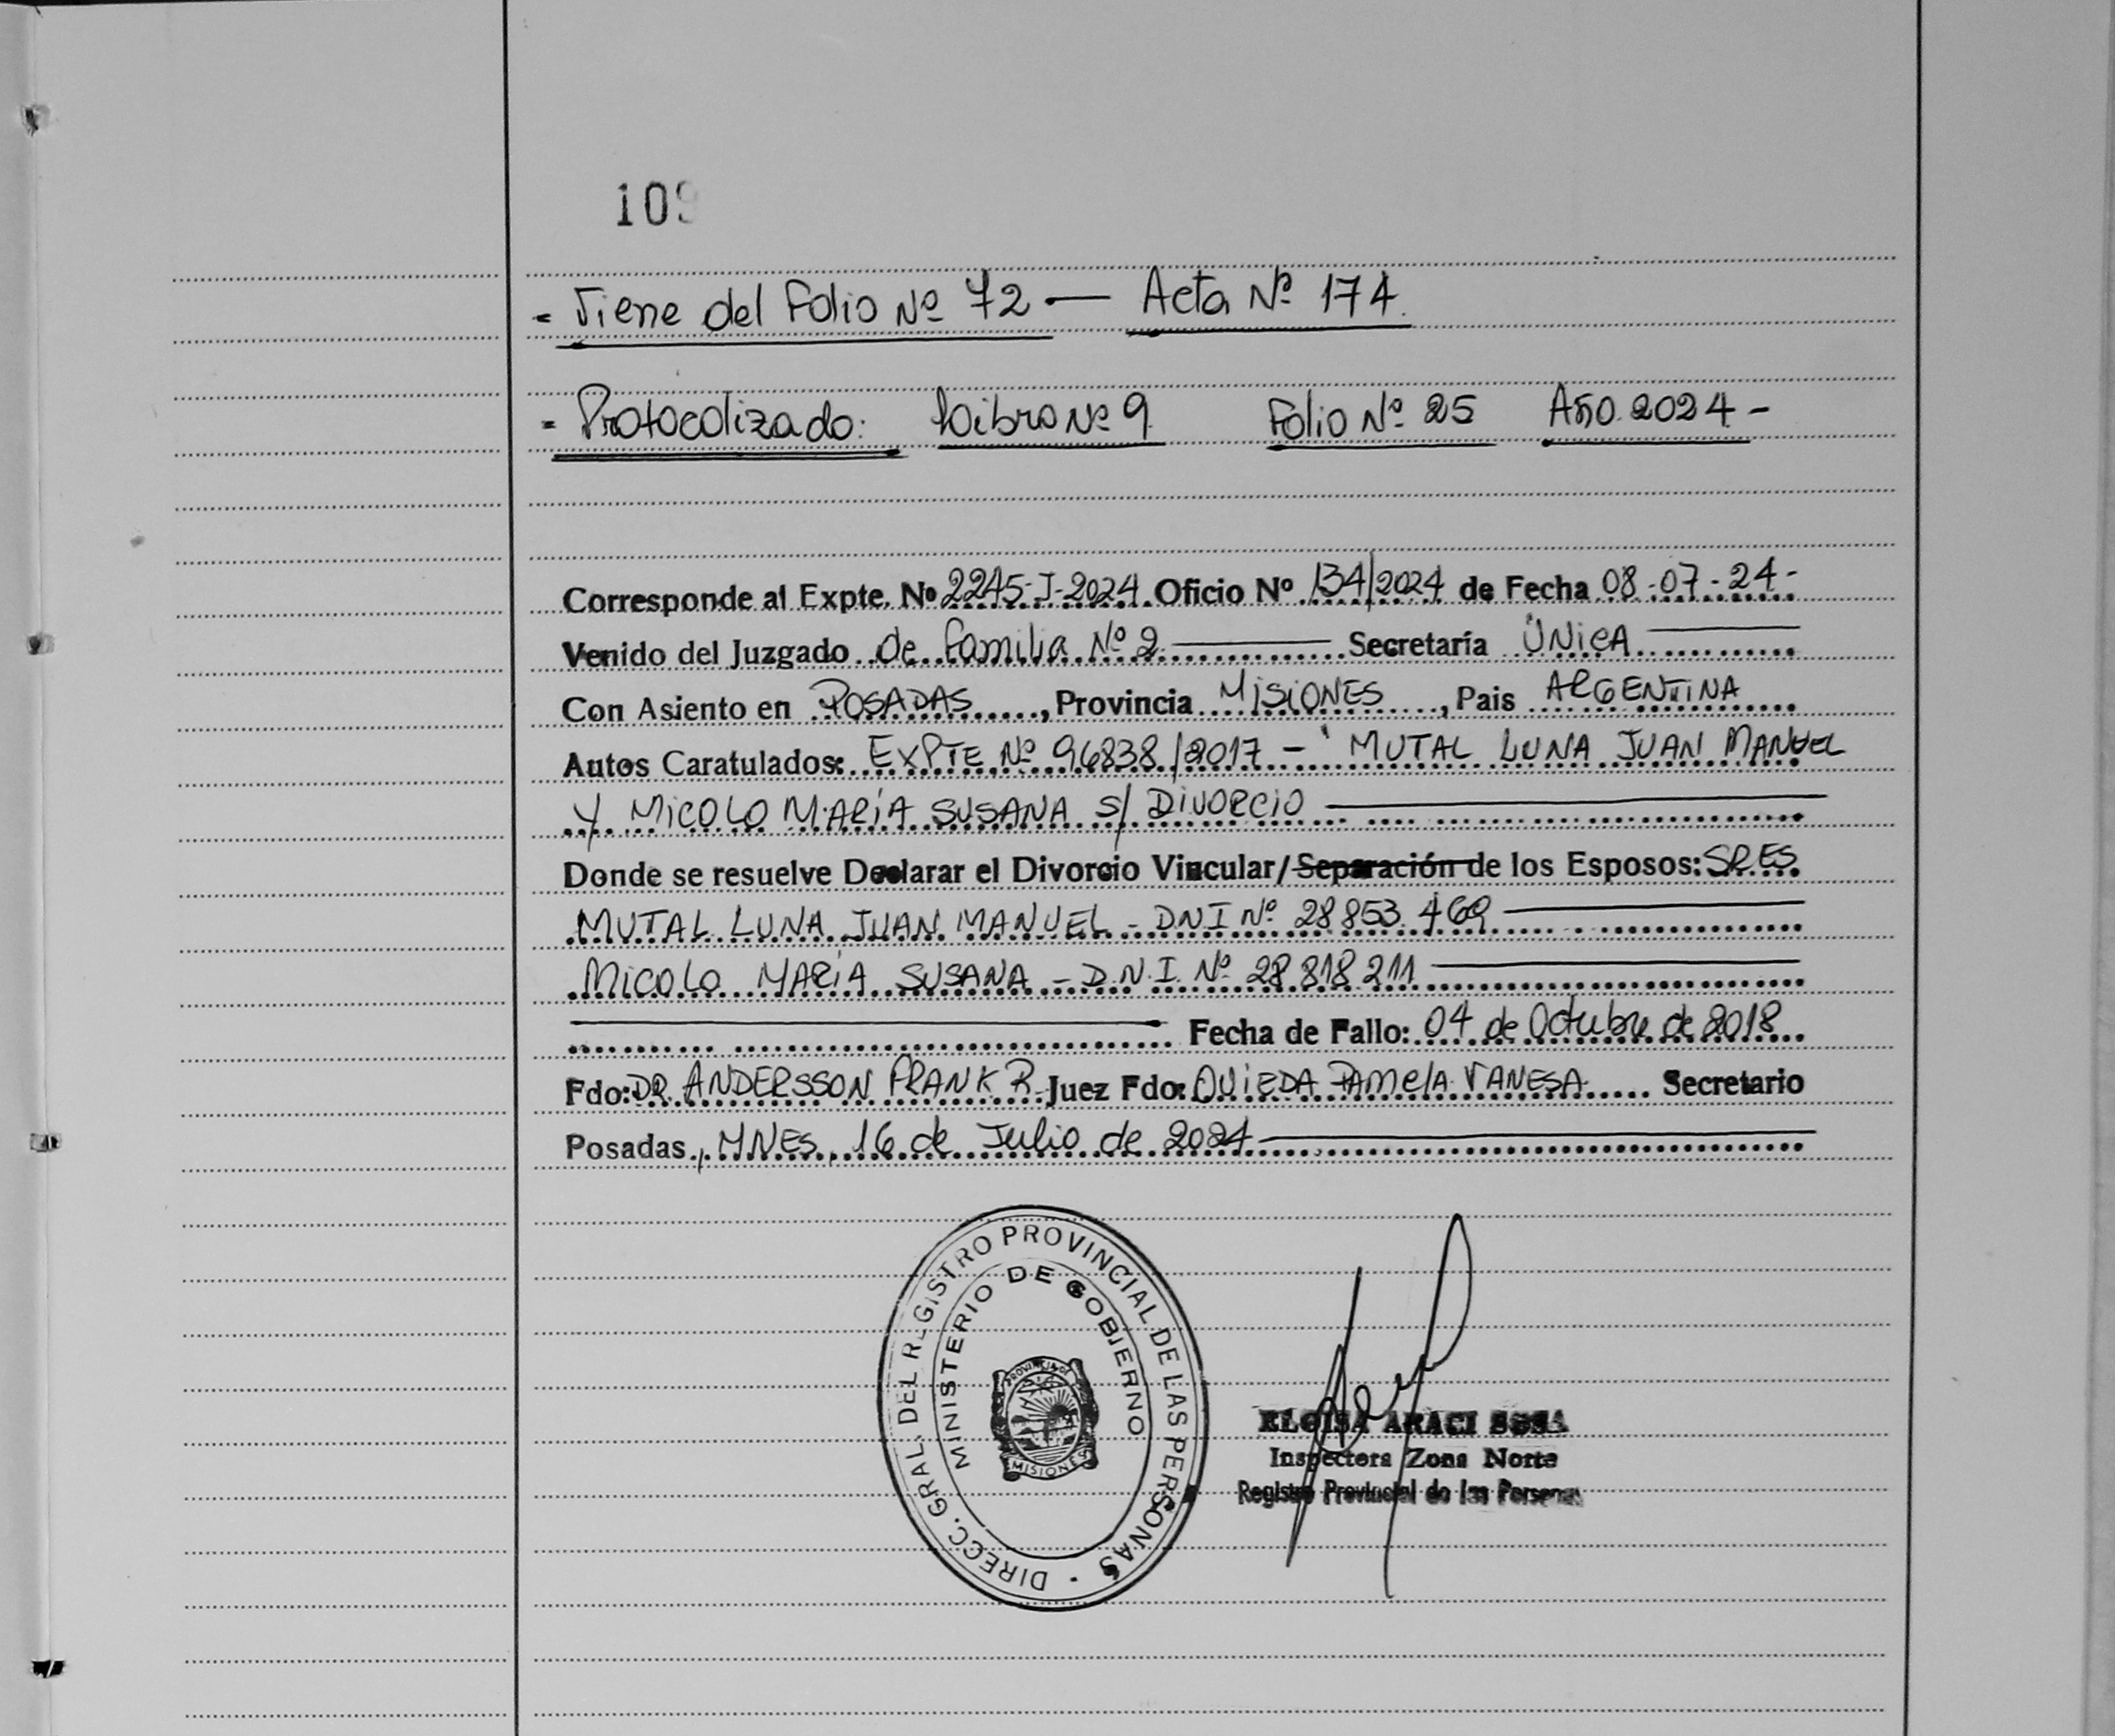 109
- Viene del Folio Nº 72 — Acta Nº 174.
- Protocolizado: Libro Nº 9 Folio Nº 25 Año 2024 -
Corresponde al Expte. Nº 2245-J-2024 Oficio Nº 134/2024 de Fecha 08-07-24-
Venido del Juzgado de Familia Nº 2 Secretaría ÚNICA
Con Asiento en POSADAS, Provincia MISIONES, Pais ARGENTINA
Autos Caratulados: EXPTE Nº 96838/2017 - ' MUTAL LUNA JUAN MANUEL
Y MICOLO MARÍA SUSANA S/ DIVORCIO
Donde se resuelve Declarar el Divorcio Vincular/Separación de los Esposos: SRES.
MUTAL LUNA JUAN MANUEL - DNI Nº 28853.469
MICOLO MARÍA SUSANA - D.N.I. Nº 28818211
Fecha de Fallo: 04 de Octubre de 2018
Fdo: DR. ANDERSSON FRANK R. Juez Fdo: OVIEDA PAMELA VANESA Secretario
Posadas, MNES, 16 de Julio de 2024
DIRECC. GRAL. DEL REGISTRO PROVINCIAL DE LAS PERSONAS
MINISTERIO DE GOBIERNO
PROVINCIA DE
MISIONES
ELOISA ARACI SOSA
Inspectora Zona Norte
Registro Provincial de las Personas